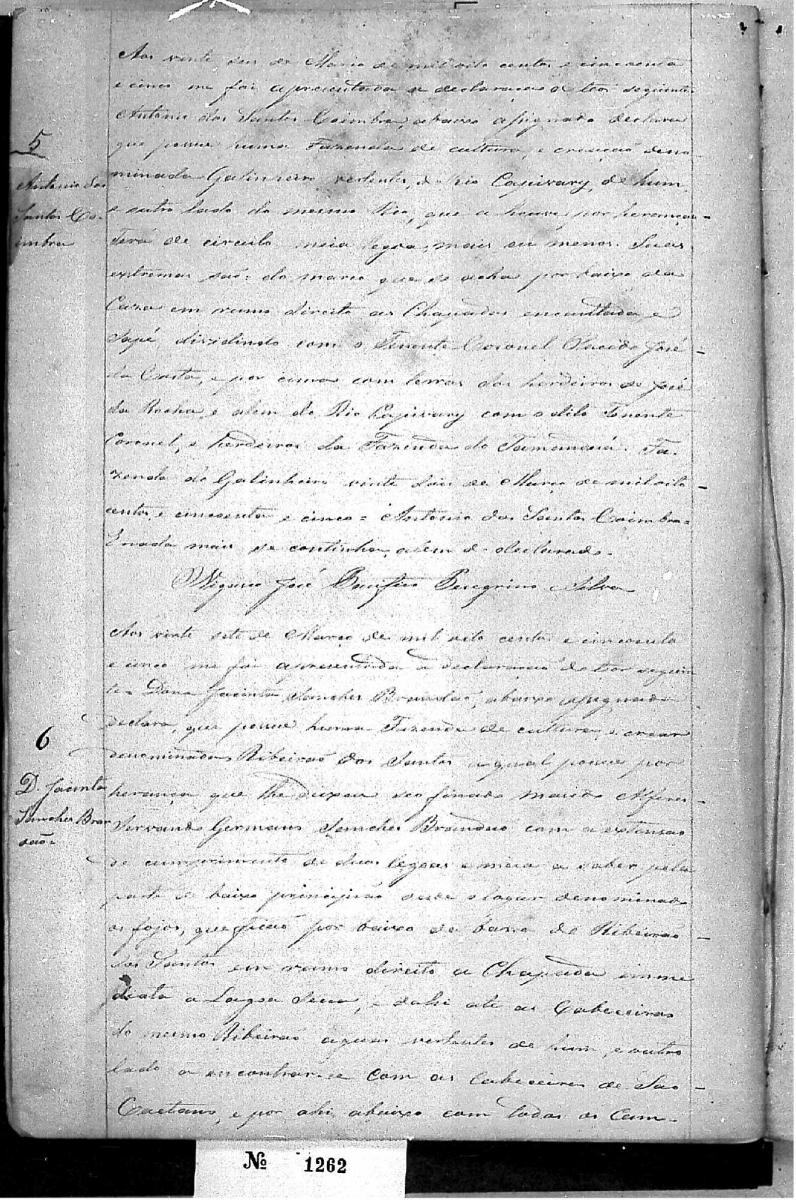 Aos vinte seis de Março de mil oito centos e cincoenta
e cinco me foi apresentada a declaração do teor seguinte
Antonio dos Santos Coimbra, abaixo assignado declara
que possue huma Fazenda de cultura, e creação deno
minada Galinheiro vertentes, do Rio Capivary, de hum
e outro lado do mesmo Rio, que a houve por herança
Terá de circulo meia legoa, mais ou menos. Suas
extremas saõ: do marco que se acha por baixo da
Caza em rumo direito as Chapadas encantada, e
Sapé, dividindo com o Tenente Coronel Placido José
da Costa, e por cima com terras dos herdeiros de José
da Rocha, e alem do Rio Capivary com o dito Tenente
Coronel, e herdeiros da Fazenda do Tamanduá. Fa
zenda do Galinheiro vinte dois de Março de mil oito
centos, e cincoenta e cinco = Antonio dos Santos Coimbra =
E nada mais se continha, alem do declarado.
Vigario José Peregrino Silva
Aos vinte sete de Março de mil oito centos e cincoenta
e cinco me foi apresentada a declaração do teor seguin
te = Dona Jacinta Sanches Brandaõ, abaixo assignada
declara, que possue huma Fazenda de cultura, e crear
denominada Ribeiraõ dos Santos a qual possue por
herança que lhe deixou seo finado marido Alferes
Servando Germano Sanches Brandaõ com a extensaõ
de cumprimento de duas legoas e meia a saber pela
parte de baixo principiaõ desde o lugar denominado
os fojos, que ficaõ por baixo da barra do Ribeiraõ
dos Santos em rumo direito a Chapada imme
diata a Lagoa Seca, e dahi até as Cabeceiras
do mesmo Ribeiraõ agoas vertentes de hum, e outro
lado a encontrar-se com as Cabeceiras de Saõ
Caetano, e por ahi abaixo com todas as Cam-
5
Antonio dos
Santos Co-
imbra
6
D. Jacinta
Sanches Bran
daõ
Nº 1262